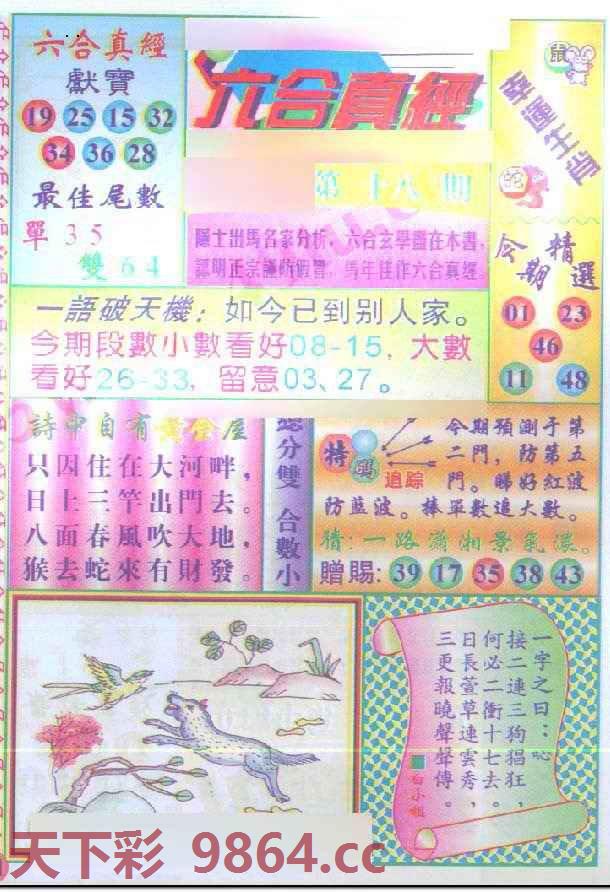 六合真經
獻寶
19 25 15 32
34 36 28
最佳尾數
單 3 5
雙 6 4
六合真經
第十八期
隱士出馬名家分析,六合玄學盡在本書,
認明正宗謹防假冒,馬年佳作六合真經.
鼠
幸運生肖
蛇
今期
精選
01 23
46
11 48
一語破天機:如今已到别人家。
今期段數小數看好08-15,大數
看好26-33,留意03、27。
詩中自有黃金屋
只因住在大河畔,
日上三竿出門去。
八面春風吹大地,
猴去蛇來有財發。
總分雙 合數小
特碼
追踪
今期預測于第
二門,防第五
門。睇好紅波
防藍波。捧單數追大數。
猜:一路瀟湘景氣濃。
贈賜:39 17 35 38 43
一字之曰:吣
接二連三狗猖狂,
何必二衝十七去。
日長萱草連雲秀,
三更報曉聲聲傳。
白小姐
天下彩 9864.cc